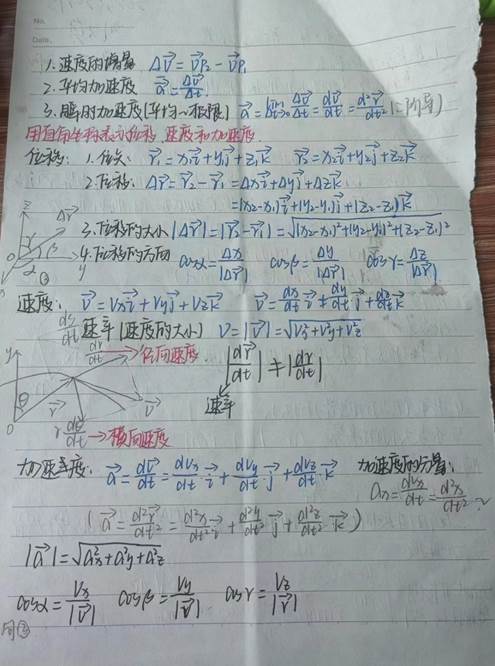 No.
Date.
1. 速度的增量 Δv⃗ = v⃗P₂ - v⃗P₁
2. 平均加速度 a⃗ = Δv⃗/Δt
3. 瞬时加速度(平均~极限) a⃗ = lim Δt→0 Δv⃗/Δt = dv⃗/dt = d²r⃗/dt² (二阶导)
用直角坐标表示位移、速度和加速度.
位移: 1. 位矢: r⃗₁ = x₁i⃗+y₁j⃗+z₁k⃗ r⃗₂ = x₂i⃗+y₂j⃗+z₂k⃗
2. 位移: Δr⃗ = r⃗₂ - r⃗₁ = Δxi⃗+Δyj⃗+Δzk⃗
= (x₂-x₁)i⃗+(y₂-y₁)j⃗+(z₂-z₁)k⃗
z Δr⃗
3. 位移的大小 |Δr⃗| = |r⃗₂ - r⃗₁| = √(x₂-x₁)²+(y₂-y₁)²+(z₂-z₁)²
O α β γ y x ②
4. 位移的方向 cosα = Δx/|Δr⃗| cosβ = Δy/|Δr⃗| cosγ = Δz/|Δr⃗|
速度: v⃗ = vxi⃗+vyj⃗+vzk⃗ v⃗ = dx/dt i⃗ + dy/dt j⃗ + dz/dt k⃗
ds/dt 速率(速度的大小) v = |v⃗| = √v²x+v²y+v²z
y dr/dt → 径向速度 |dr⃗/dt| ≠ |dr/dt|
θ r⃗ v⃗ 速率
O r dθ/dt → 横向速度
加速度: a⃗ = dv⃗/dt = dvx/dt i⃗ + dvy/dt j⃗ + dvz/dt k⃗ 加速度的分量:
ax = dvx/dt = d²x/dt² ~
( a⃗ = d²r⃗/dt² = d²x/dt² i⃗ + d²y/dt² j⃗ + d²z/dt² k⃗ )
|a⃗| = √a²x+a²y+a²z
cosα = vx/|v⃗| cosβ = vy/|v⃗| cosγ = vz/|v⃗|
同②